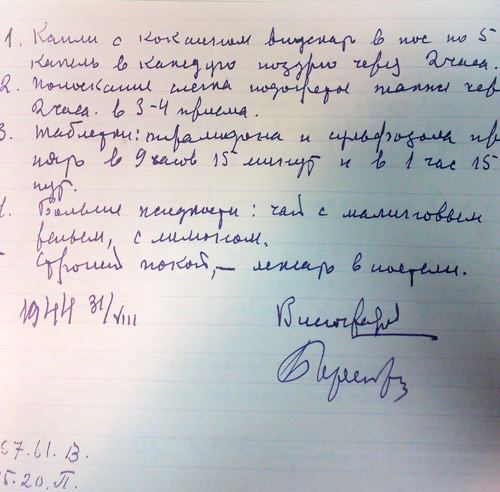 1. Капли с кокаином впускать в нос по 5
капель в каждую ноздрю через 2 часа.
2. Полоскание слегка подогретое также чер
2 часа. в 3-4 приема.
3. Таблетки: пирамидона и сульфазола при
нять в 9 часов 15 минут и в 1 час 15
нут.
Больше жидкости: чай с малиновым
реньем, с лимоном.
Строгий покой, – лежать в постели.
1944 31/VIII
Виноградов
37.61.В.
5.20.П.